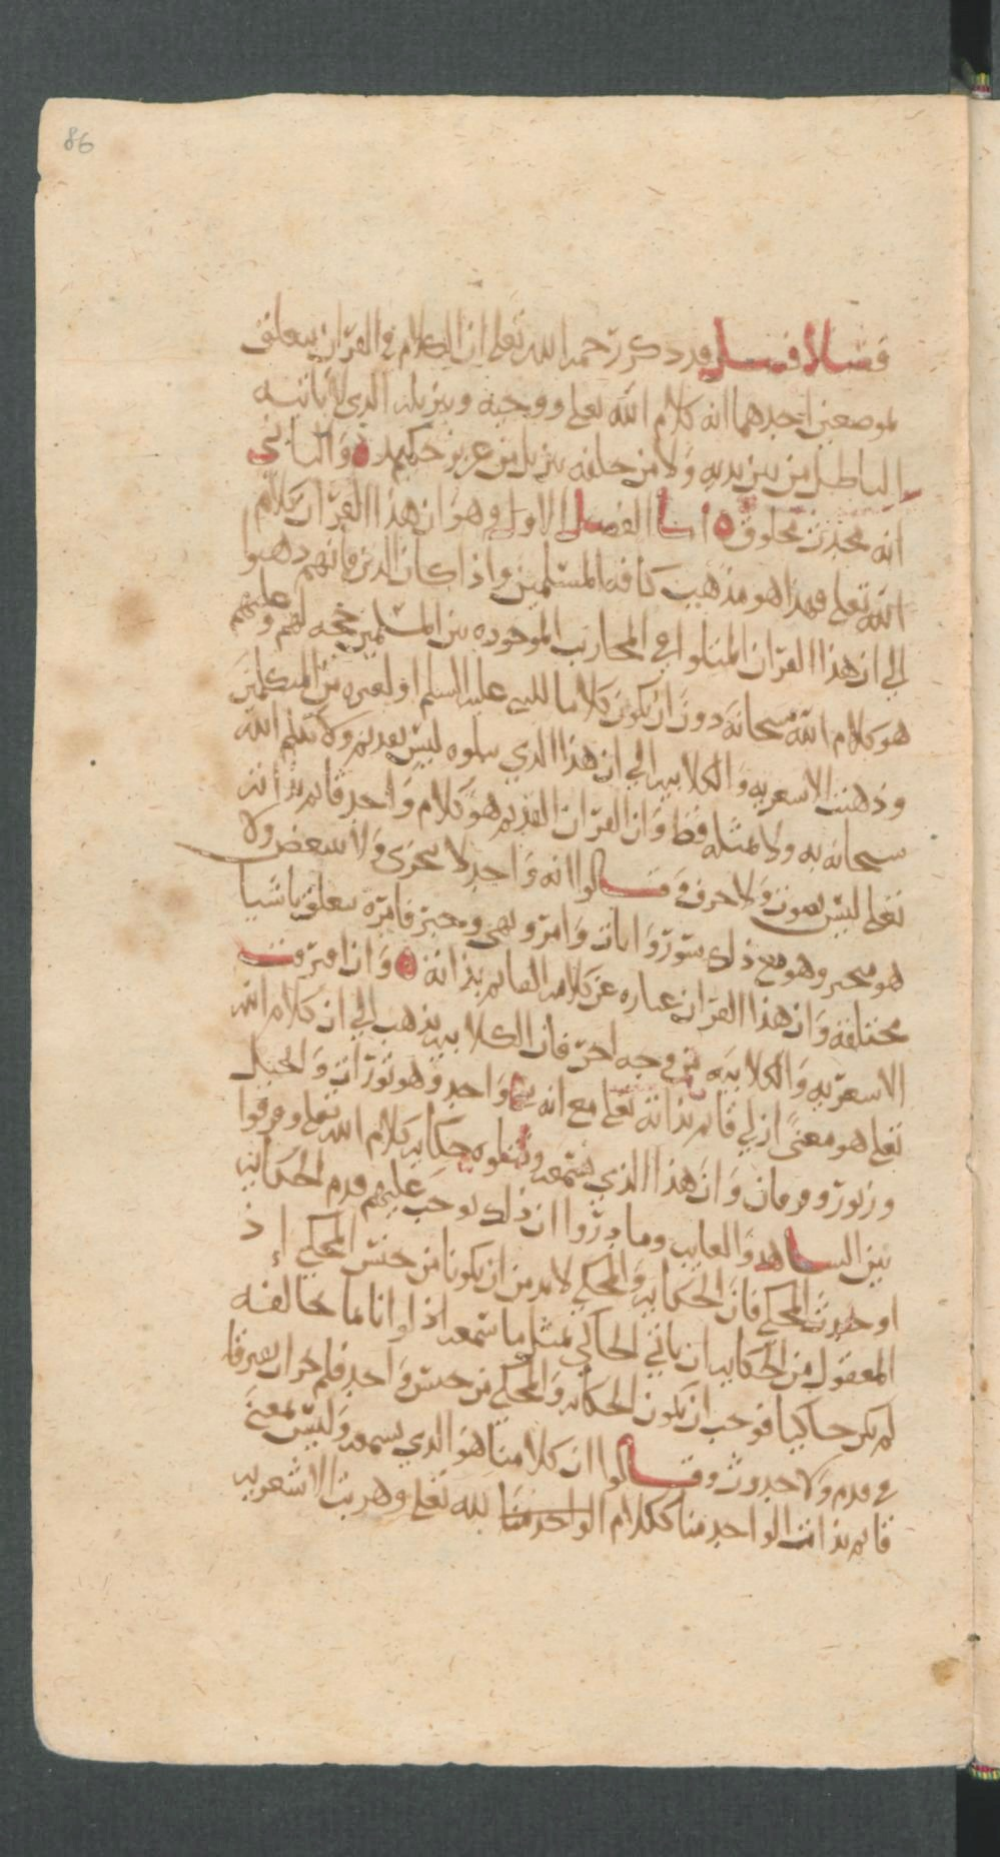 86
فصل قد ذكر رحمه الله تعلى ان الكلام في القران يتعلق
بموضعين احدهما انه كلام الله تعلى ووحيه وتنزيله الذي لا ياتيه
الباطل من بين يديه ولا من خلفه تنزيل من عزيز حكيم والثاني
انه محدث مخلوق اما الفصل الاول وهو ان هذا القران كلام
الله تعلى فهذا هو مذهب كافة المسلمين واذا كان الذين فانهم ذهبوا
الى ان هذا القران المتلوا في المحاريب الموجوده بين المسلمين حجه لهم وعليهم
هو كلام الله سبحانه دون ان يكون كلاما للنبي عليه السلم او لغيره من المتكلمين
وذهبت الاشعريه والكلابيه الى ان هذا الذي نتلوه ليس بقديم ولا تكلم الله
سبحانه به ولا بمثله قط وان القران القديم هو كلام واحد قائم بذات الله
تعلى ليس بصوت ولا حرف وقالوا انه واحد لا يتجزى ولا يتبعض ولا
هو متحيز وهو مع ذلك سور وايات وامر ونهي وخبر فامره يتعلق باشيا
مختلفه وان هذا القران عباره عن كلامه القائم بذاته وان افترقت
الاشعريه والكلابيه من وجه اخر فان الكلابيه يذهب الى ان كلام الله
تعلى هو معنى ازلي قائم بذاته تعلى مع انه شي واحد وهو توراة وانجيل
وزبور وفرقان وان هذا الذي نسمعه ونتلوه حكايه كلام الله تعلى وفرقوا
بين الشاهد والغايب وما دروا ان ذلك يوجب عليهم قدم الحكايه
او حدث المحكي فان الحكايه والمحكي لا بد من ان يكونا من جنس المحكي اذ
المعقول من الحكايه ان ياتي الحاكي بمثل ما سمعه اذ لو اتا بما يخالفه
لم يكن حاكيا فوجب ان يكون الحكايه والمحكي من جنس واحد فلم يجز ان يفترقا
في قدم ولا حدوث وقالوا ان كلامنا هو الذي يسمع وليس بمعنى
قائم بذات الواحد منا ككلام الواحد منا لله تعلى وهربت الاشعريه